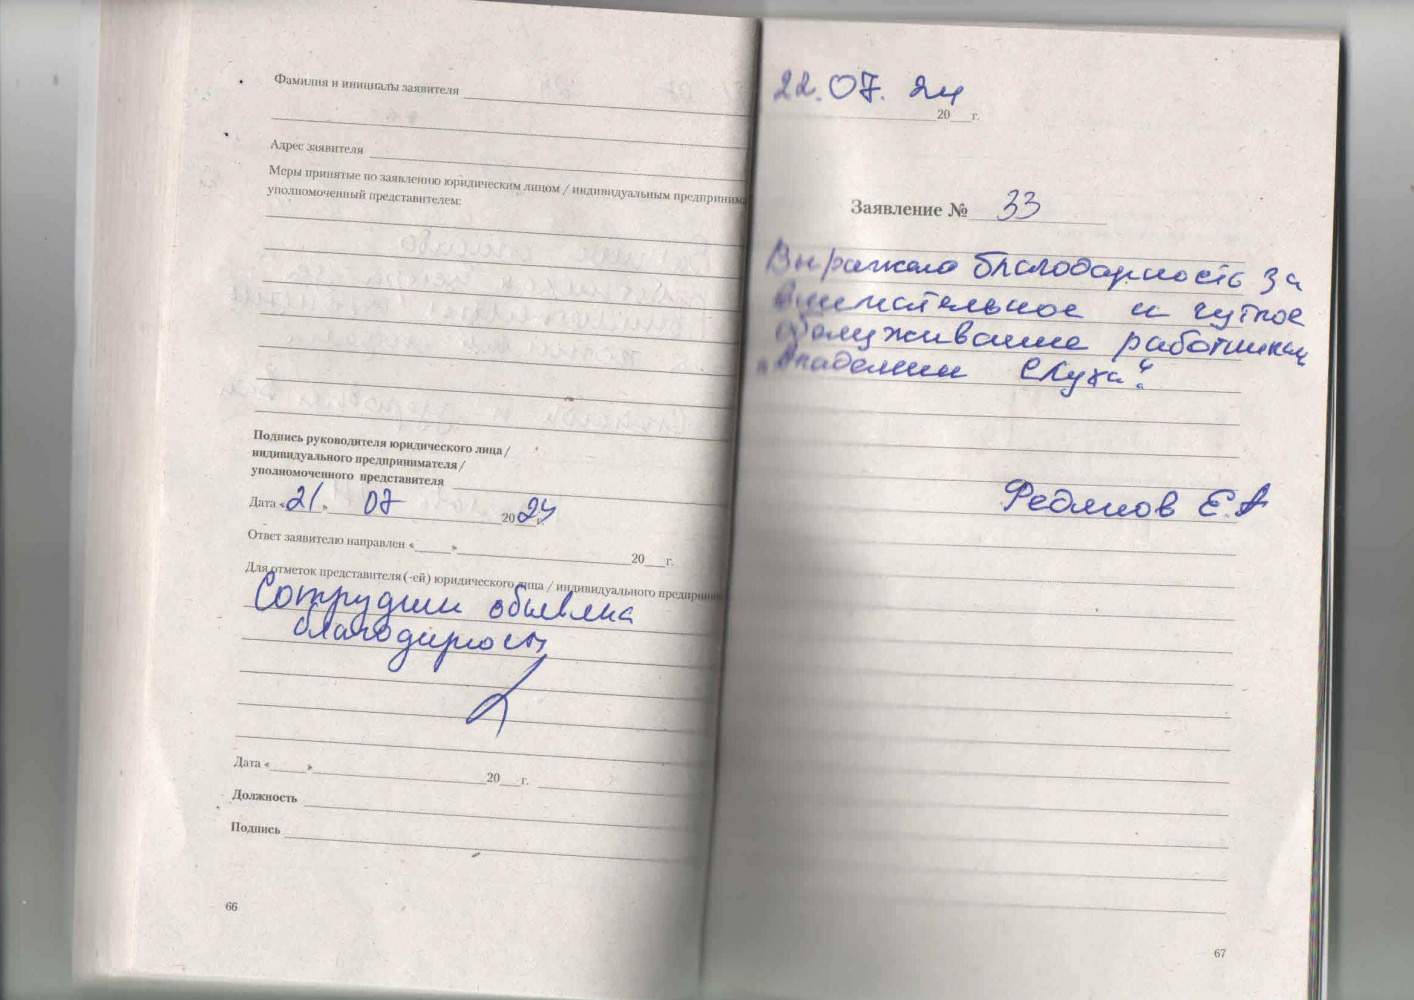 Фамилия и инициалы заявителя
Адрес заявителя
Меры принятые по заявлению юридическим лицом / индивидуальным предпринима
уполномоченный представителем:
Подпись руководителя юридического лица /
индивидуального предпринимателя /
уполномоченного представителя
Дата «21» 07 2024 г.
Ответ заявителю направлен «___»___20___г.
Для отметок представителя (-ей) юридического лица / индивидуального предприним
Сотрудник объявлена
благодарность
Дата «___»___20___г.
Должность
Подпись
66
22.07.24
20___г.
Заявление № 33
Выражаю благодарность за
внимательное и чуткое
обслуживание работникам
"Академии Слуха".
Федянов Е.А
67